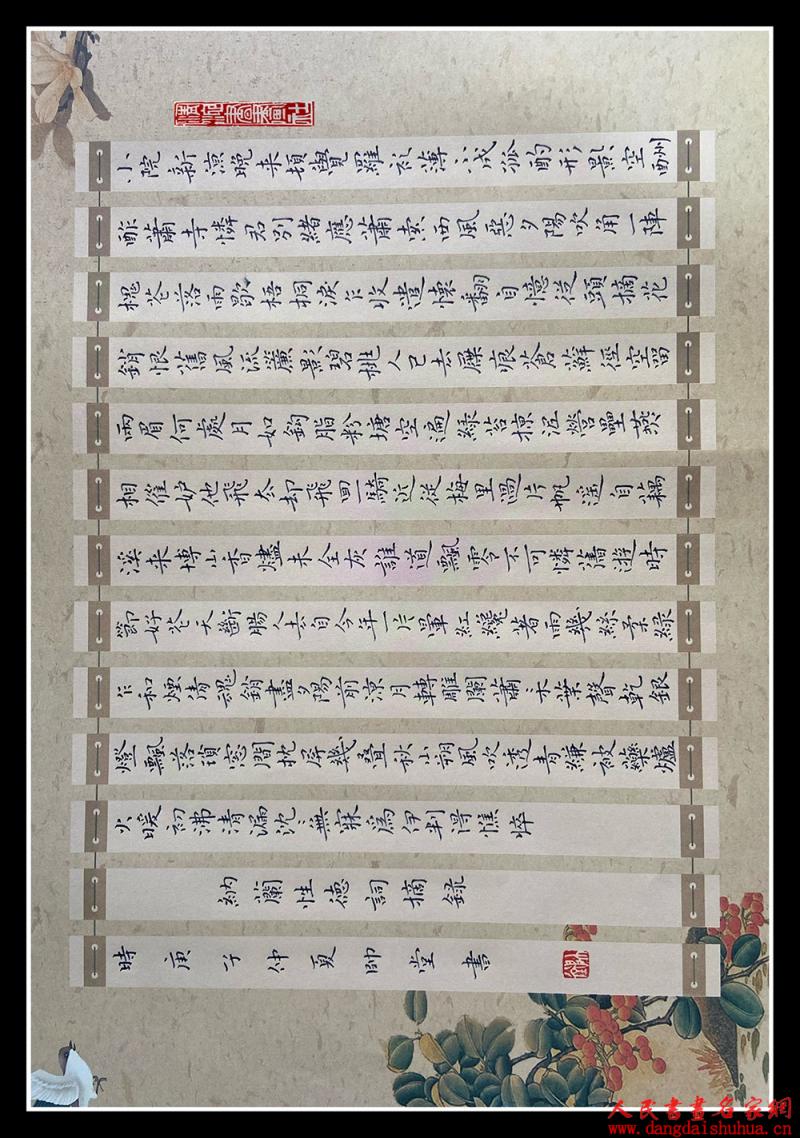 小院新涼晚来頓覺羅衫薄不成孤酌形影空酬
酢蕭寺憐君別緒應蕭索西風惡夕陽吹角一陣
槐花落雨歇梧桐淚乍收遣懷翻自憶從頭摘花
銷恨舊風流簾影碧桃人已去屧痕蒼蘚徑空留
兩眉何處月如鈎脂粉塘空遍綠苔掠泥營壘燕
相催妒他飛去却飛回一騎近從梅里過片帆遥自藕
溪来博山香燼未全灰誰道飄零不可憐舊遊時
節好花天斷腸人去自今年一片暈紅纔著雨幾絲柔綠
乍和煙倩魂銷盡夕陽前涼月轉雕闌蕭〻木葉聲乾銀
燈飄落瑣窓間枕屏幾叠秋山朔風吹透青縑被藥爐
火暖初沸清漏沈〻無寐為伊判得憔悴
納蘭性德詞摘錄
時庚子仲夏帥堂書
人民書畫名家網
www.dangdaishuhua.cn